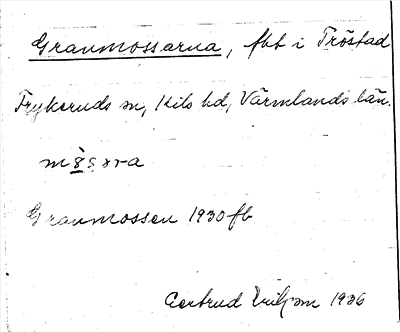 Granmossarna, fbt i Tröstad
Frykeruds sn, Kils hd, Värmlands län.
Granmossen 1930 fb
Gertrud 1936